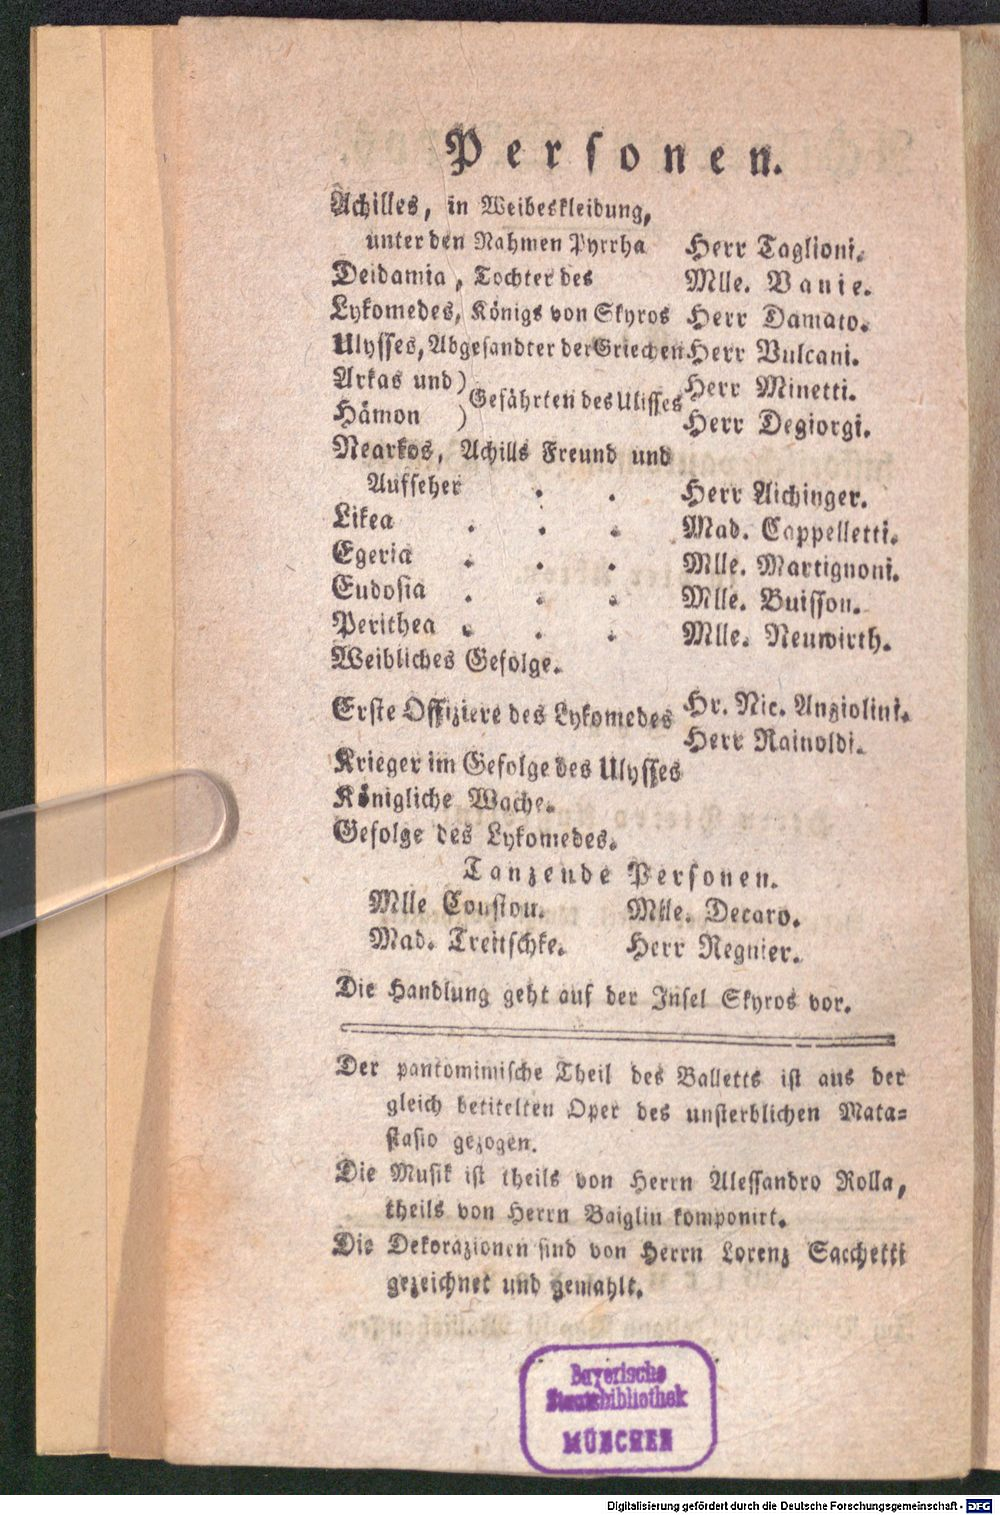 Personen.
Achilles, in Weibeskleidung,
unter den Nahmen Pyrrha Herr Taglioni.
Deidamia, Tochter des Mlle. Vanie.
Lykomedes, Königs von Skyros Herr Damato.
Ulysses, Abgesandter der Griechen Herr Vulcani.
Arkas und) Herr Minetti.
Gefährten des Ulisses
Hämon ) Herr Degiorgi.
Nearkos, Achills Freund und
Aufseher . . Herr Aichinger.
Likea . . . Mad. Cappelletti.
Egeria . . . Mlle. Martignoni.
Eudosia . . . Mlle. Buisson.
Perithea . . . Mlle. Neuwirth.
Weibliches Gefolge.
Erste Offiziere des Lykomedes Hr. Nic. Anziolini.
Herr Rainoldi.
Krieger im Gefolge des Ulysses
Königliche Wache.
Gefolge des Lykomedes.
Tanzende Personen.
Mlle Couston. Mlle. Decaro.
Mad. Treitschke. Herr Regnier.
Die Handlung geht auf der Insel Skyros vor.
Der pantomimische Theil des Balletts ist aus der
gleich betitelten Oper des unsterblichen Mata-
stasio gezogen.
Die Musik ist theils von Herrn Alessandro Rolla,
theils von Herrn Baiglin komponirt.
Die Dekorazionen sind von Herrn Lorenz Sacchetti
gezeichnet und gemahlt.
Bayerische
Staatsbibliothek
MÜNCHEN
Digitalisierung gefördert durch die Deutsche Forschungsgemeinschaft - DFG